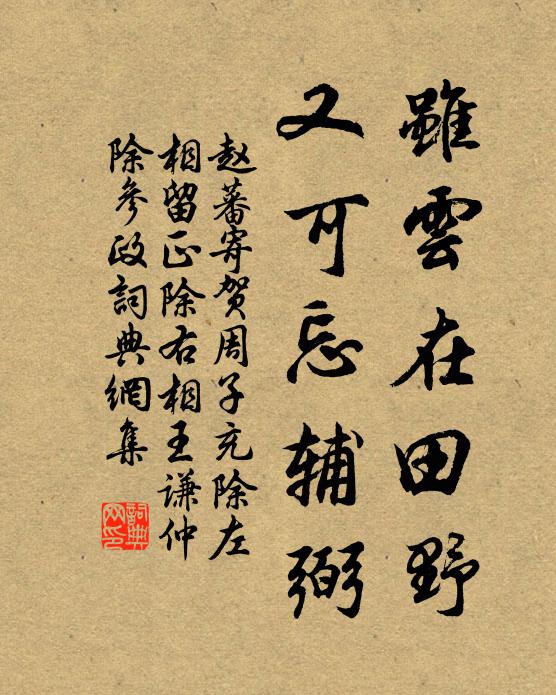 雖雲在田野
又可忘辅弼
赵蕃寄贺周子充除左
相留正除右相王谦仲
除参政詞典網集
詞典网印